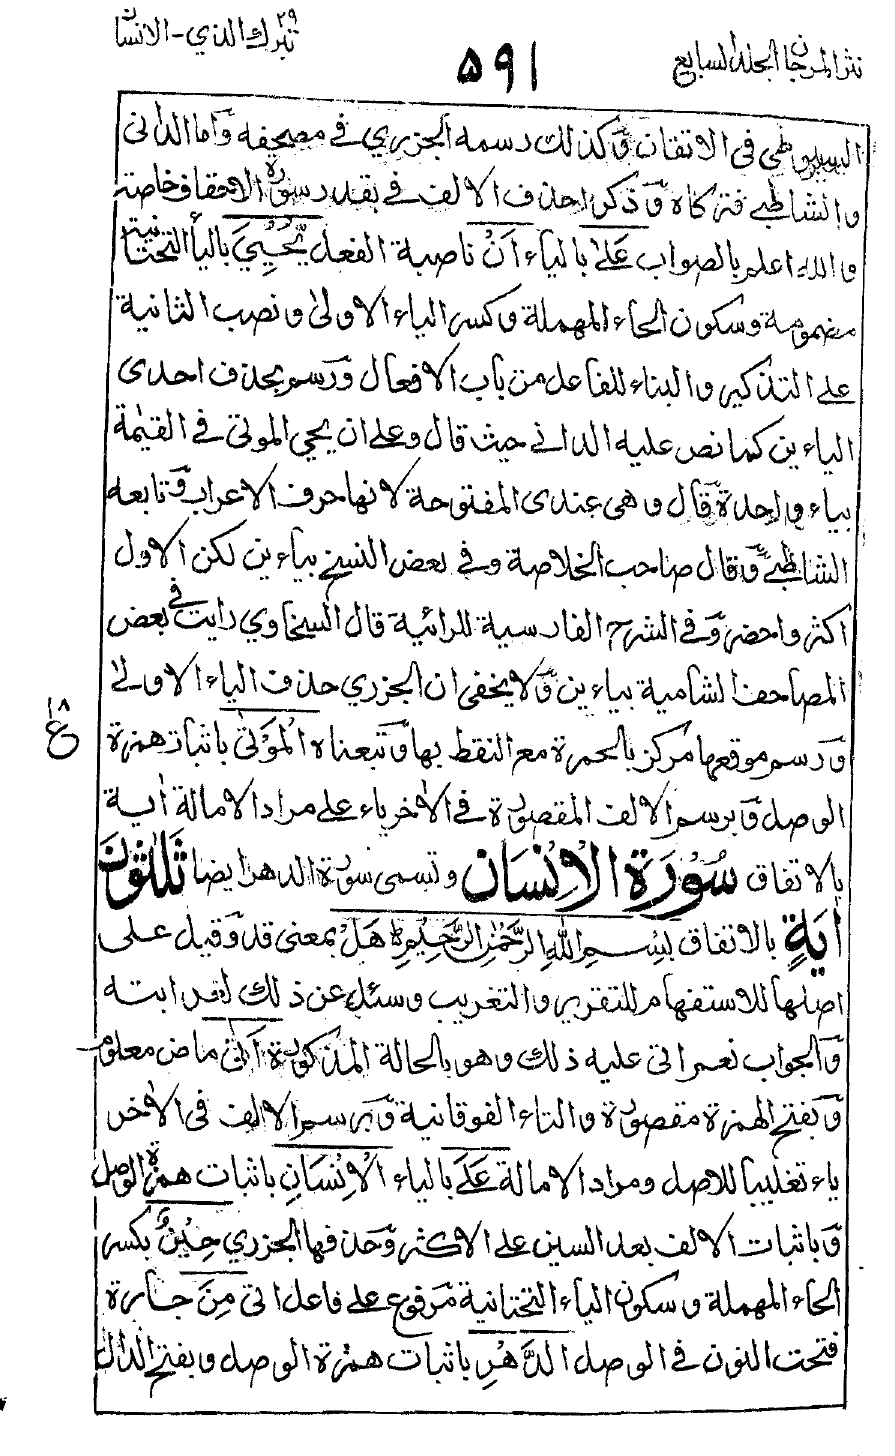 نثر المرجان الجلد السابع
٥٩١
تبرك الذي ٢٩ - الانسان
السيوطي في الاتقان وكذلك رسمه الجزري في مصحفه واما الداني
والشاطبي فتركاه وذكرا حذف الالف في بقدر سورة الاحقاف خاصة
والله اعلم بالصواب عَلٰى بالياء اَنْ ناصبة الفعل يُّحْيِيَ بالياء التحتانية
مضمومة وسكون الحاء المهملة وكسر الياء الاولى ونصب الثانية
على التذكير والبناء للفاعل من باب الافعال ورسم بحذف احدى
الياءين كما نص عليه الداني حيث قال وعلى ان يحي الموتى في القيٰمة
بياء واحدة قال وهي عندى المفتوحة لانها حرف الاعراب وتابعه
الشاطبي وقال صاحب الخلاصة وفي بعض النسخ بياءين لكن الاول
اكثر واحضر وفي الشرح الفارسية للرائية قال السخاوي رايت في بعض
المصاحف الشامية بياءين ولا يخفى ان الجزري حذف الياء الاولى
ورسم موقعها مركز بالحمرة مع النقط بها وتبعناه الْمَوْتٰى باثبات همزة
١٨ ع
الوصل وبرسم الالف المقصورة في الاٰخر ياء على مراد الامالة اٰية
بالاتفاق سُوْرَةُ الْاِنْسَانِ وتسمى سورة الدهر ايضا ثَلٰثُوْنَ
اٰيَةٍ بالاتفاق بِسْمِ اللّٰهِ الرَّحْمٰنِ الرَّحِيْمِ هَلْ بمعنى قد وقيل على
اصلها للاستفهام للتقرير والتغريب وسئل عن ذلك لغرابته
والجواب نعم اتى عليه ذلك وهو بالحالة المذكورة اَتٰى ماض معلوم
وبفتح الهمزة مقصورة والتاء الفوقانية وبرسم الالف في الاٰخر
ياء تغليبا للاصل ومراد الامالة عَلَى بالياء الْاِنْسَانِ باثبات همزة الوصل
وباثبات الالف بعد السين على الاكثر وحذفها الجزري حِيْنٌ بكسر
الحاء المهملة وسكون الياء التحتانية مرفوع على فاعل اتى مِنَ جارة
فتحت النون في الوصل الدَّهْرِ باثبات همزة الوصل وبفتح الدال